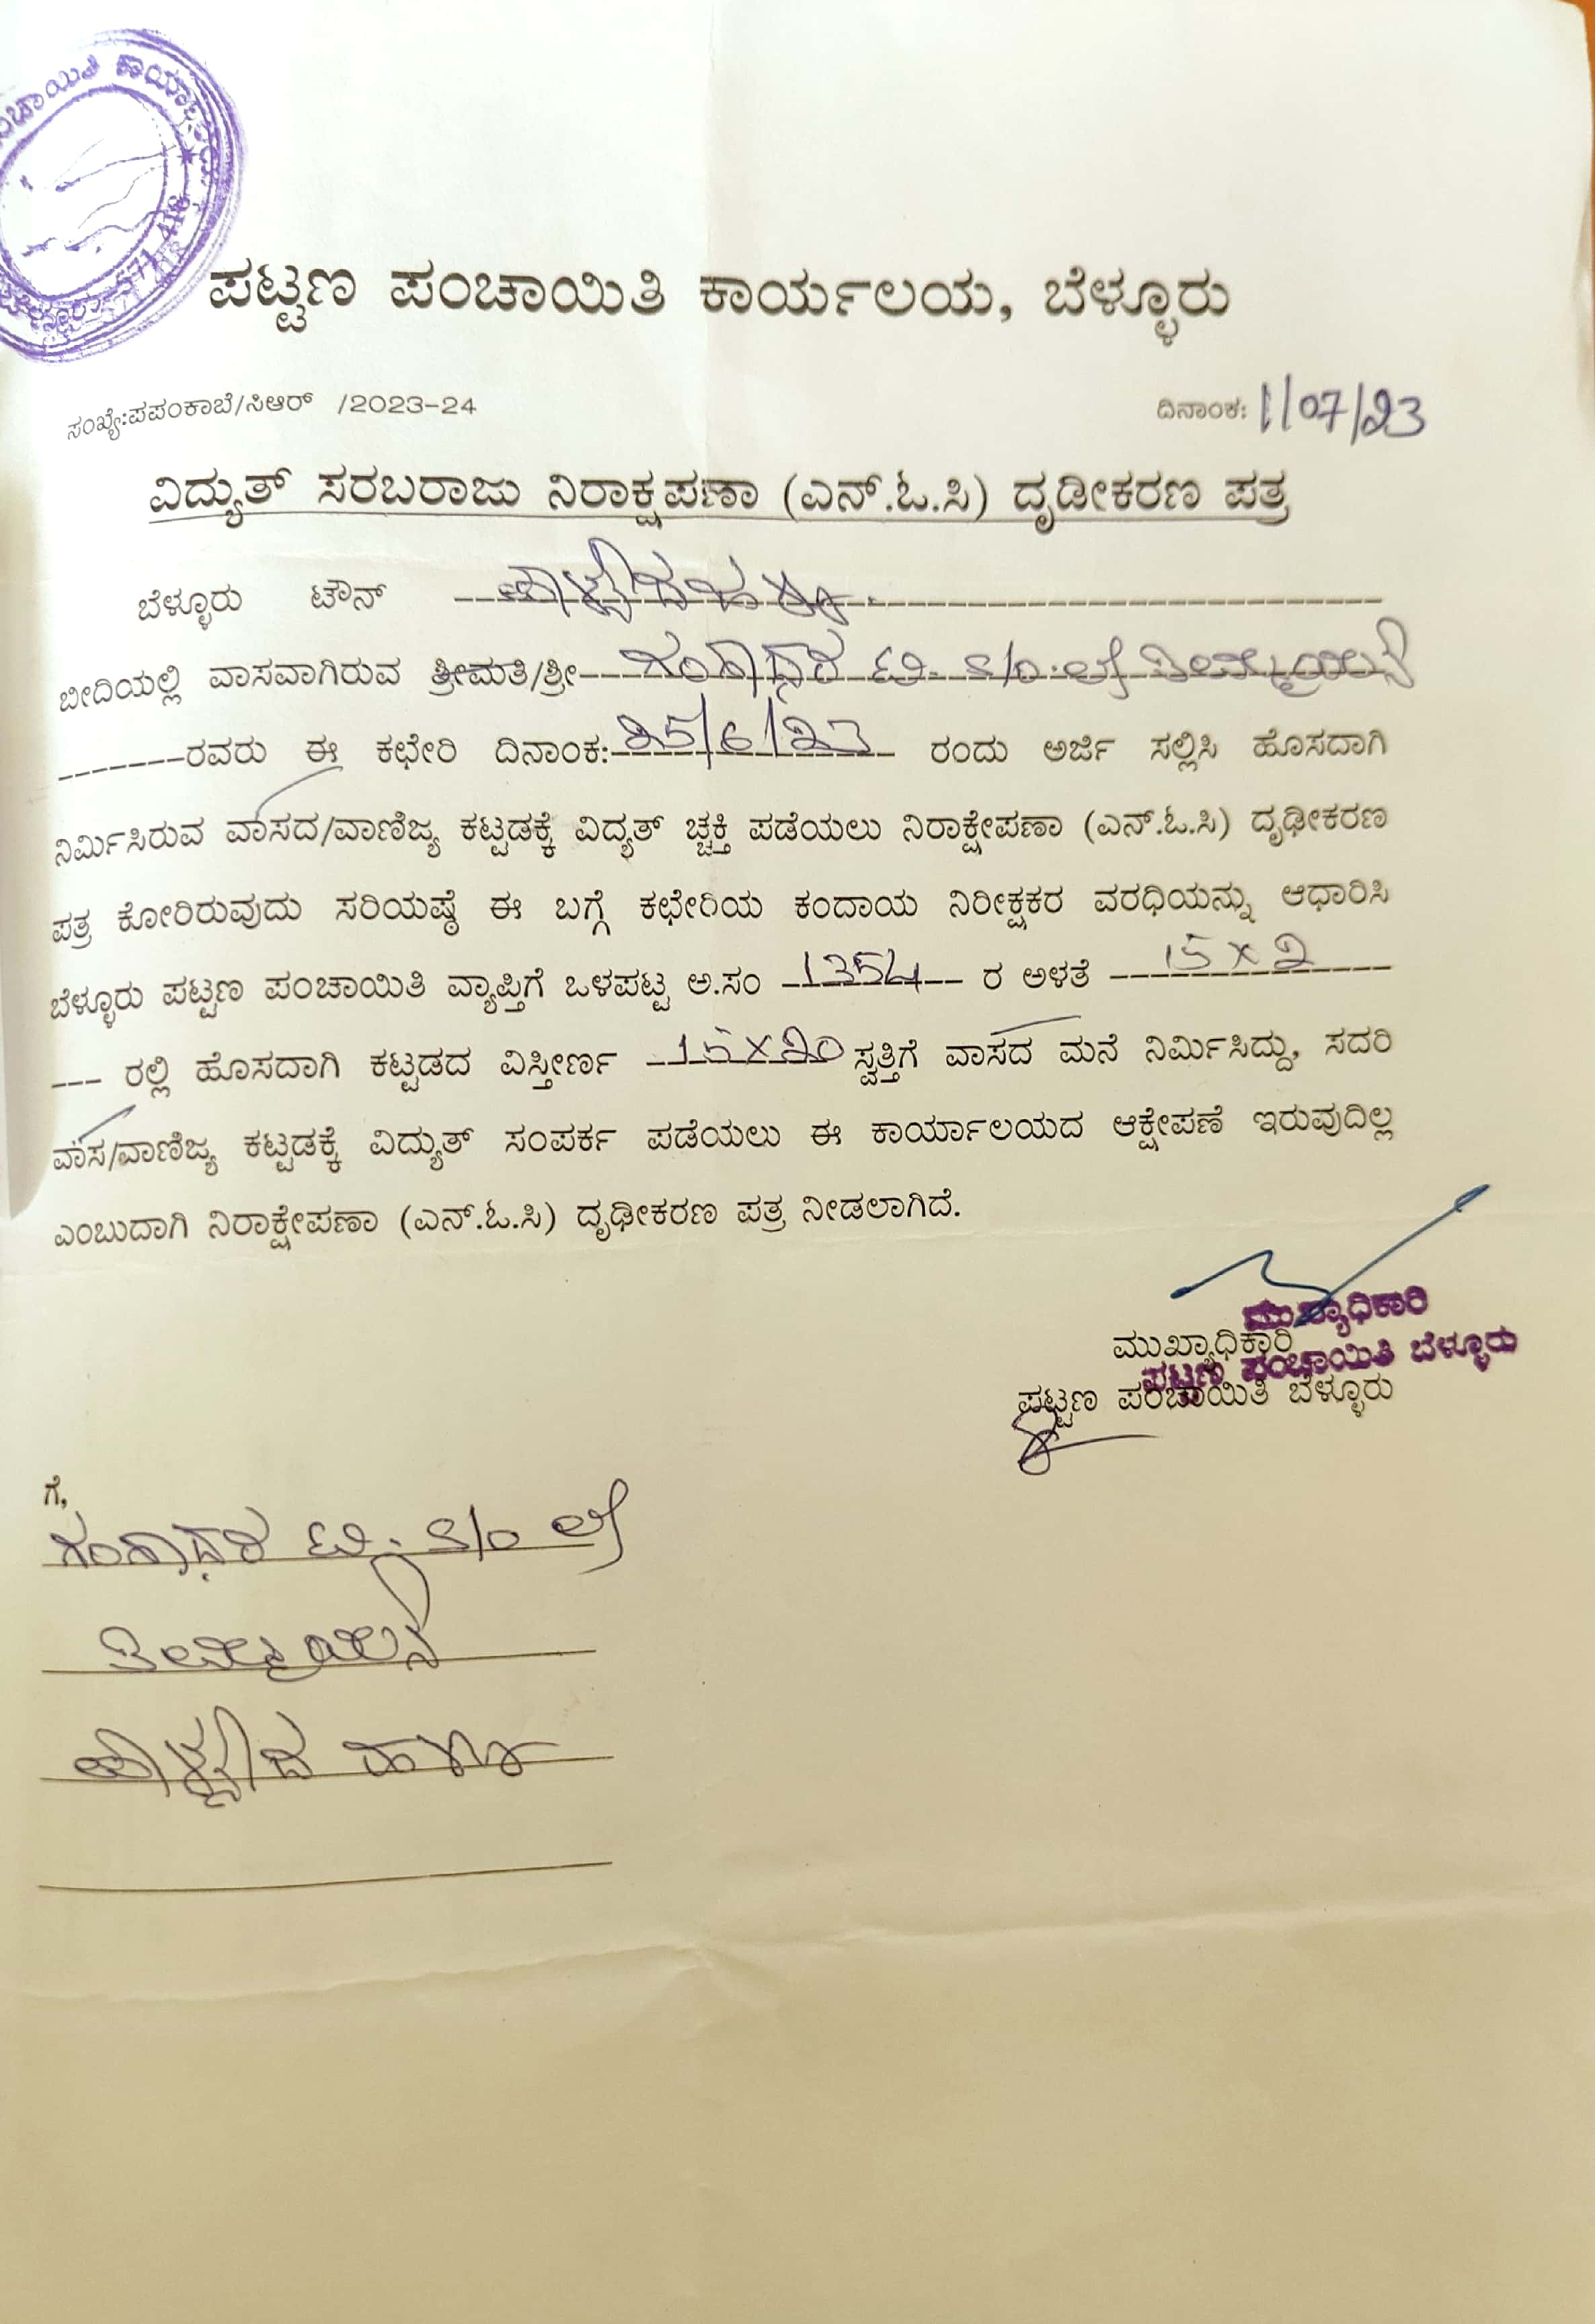 ಕಾರ್ಯಾಲಯ
ಪಟ್ಟಣ ಪಂಚಾಯಿತಿ ಕಾರ್ಯಲಯ, ಬೆಳ್ಳೂರು
ಸಂಖ್ಯೇ:ಪಪಂಕಾಬೆ/ಸಿಆರ್ /2023-24 ದಿನಾಂಕ: 1/07/23
ವಿದ್ಯುತ್ ಸರಬರಾಜು ನಿರಾಕ್ಷಪಣಾ (ಎನ್.ಓ.ಸಿ) ದೃಡೀಕರಣ ಪತ್ರ
ಬೆಳ್ಳೂರು ಟೌನ್
ಬೀದಿಯಲ್ಲಿ ವಾಸವಾಗಿರುವ ಶ್ರೀಮತಿ/ಶ್ರೀ ಗಂಗಾಧರ ಟಿ. S/o. ಲೇ
ರವರು ಈ ಕಛೇರಿ ದಿನಾಂಕ: 25/6/23 ರಂದು ಅರ್ಜಿ ಸಲ್ಲಿಸಿ ಹೊಸದಾಗಿ
ನಿರ್ಮಿಸಿರುವ ವಾಸದ/ವಾಣಿಜ್ಯ ಕಟ್ಟಡಕ್ಕೆ ವಿದ್ಯತ್ ಚ್ಚಕ್ತಿ ಪಡೆಯಲು ನಿರಾಕ್ಷೇಪಣಾ (ಎನ್.ಓ.ಸಿ) ದೃಢೀಕರಣ
ಪತ್ರ ಕೋರಿರುವುದು ಸರಿಯಷ್ಠೆ ಈ ಬಗ್ಗೆ ಕಛೇರಿಯ ಕಂದಾಯ ನಿರೀಕ್ಷಕರ ವರಧಿಯನ್ನು ಆಧಾರಿಸಿ
ಬೆಳ್ಳೂರು ಪಟ್ಟಣ ಪಂಚಾಯಿತಿ ವ್ಯಾಪ್ತಿಗೆ ಒಳಪಟ್ಟ ಅ.ಸಂ 1354 ರ ಅಳತೆ 15 X 2
ರಲ್ಲಿ ಹೊಸದಾಗಿ ಕಟ್ಟಡದ ವಿಸ್ತೀರ್ಣ 15X20 ಸ್ವತ್ತಿಗೆ ವಾಸದ ಮನೆ ನಿರ್ಮಿಸಿದ್ದು, ಸದರಿ
ವಾಸ/ವಾಣಿಜ್ಯ ಕಟ್ಟಡಕ್ಕೆ ವಿದ್ಯುತ್ ಸಂಪರ್ಕ ಪಡೆಯಲು ಈ ಕಾರ್ಯಾಲಯದ ಆಕ್ಷೇಪಣೆ ಇರುವುದಿಲ್ಲ
ಎಂಬುದಾಗಿ ನಿರಾಕ್ಷೇಪಣಾ (ಎನ್.ಓ.ಸಿ) ದೃಢೀಕರಣ ಪತ್ರ ನೀಡಲಾಗಿದೆ.
ಮುಖ್ಯಾಧಿಕಾರಿ
ಪಟ್ಟಣ ಪಂಚಾಯಿತಿ ಬೆಳ್ಳೂರು
ಮುಖ್ಯಾಧಿಕಾರಿ
ಪಟ್ಟಣ ಪಂಚಾಯಿತಿ ಬೆಳ್ಳೂರು
ಗೆ,
ಗಂಗಾಧರ ಟಿ. S/o ಲೇ